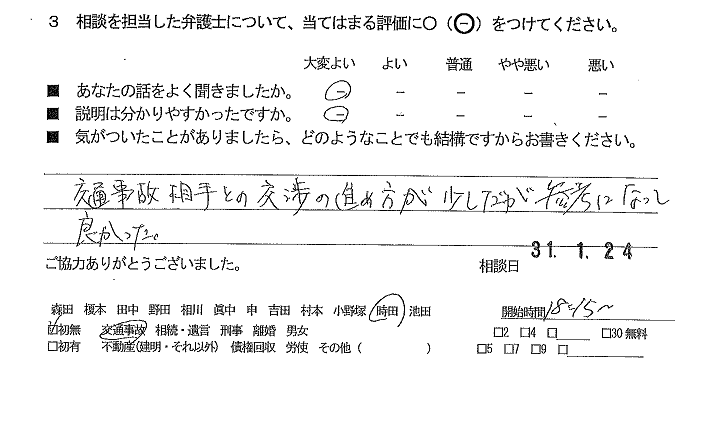 3 相談を担当した弁護士について、当てはまる評価に○（⊖）をつけてください。
大変よい よい 普通 やや悪い 悪い
■ あなたの話をよく聞きましたか。 － － － － －
■ 説明は分かりやすかったですか。 － － － － －
■ 気がついたことがありましたら、どのようなことでも結構ですからお書きください。
交通事故相手との交渉の進め方が少しだが参考になって
良かった。
ご協力ありがとうございました。
相談日 31. 1. 24
森田 榎本 田中 野田 相川 眞中 申 吉田 村本 小野塚 時田 池田
開始時間 18:15～
☑初無 交通事故 相続・遺言 刑事 離婚 男女 □2 □4 □____ □30無料
□初有 不動産(建明・それ以外) 債権回収 労使 その他（ ） □5 □7 □9 □____